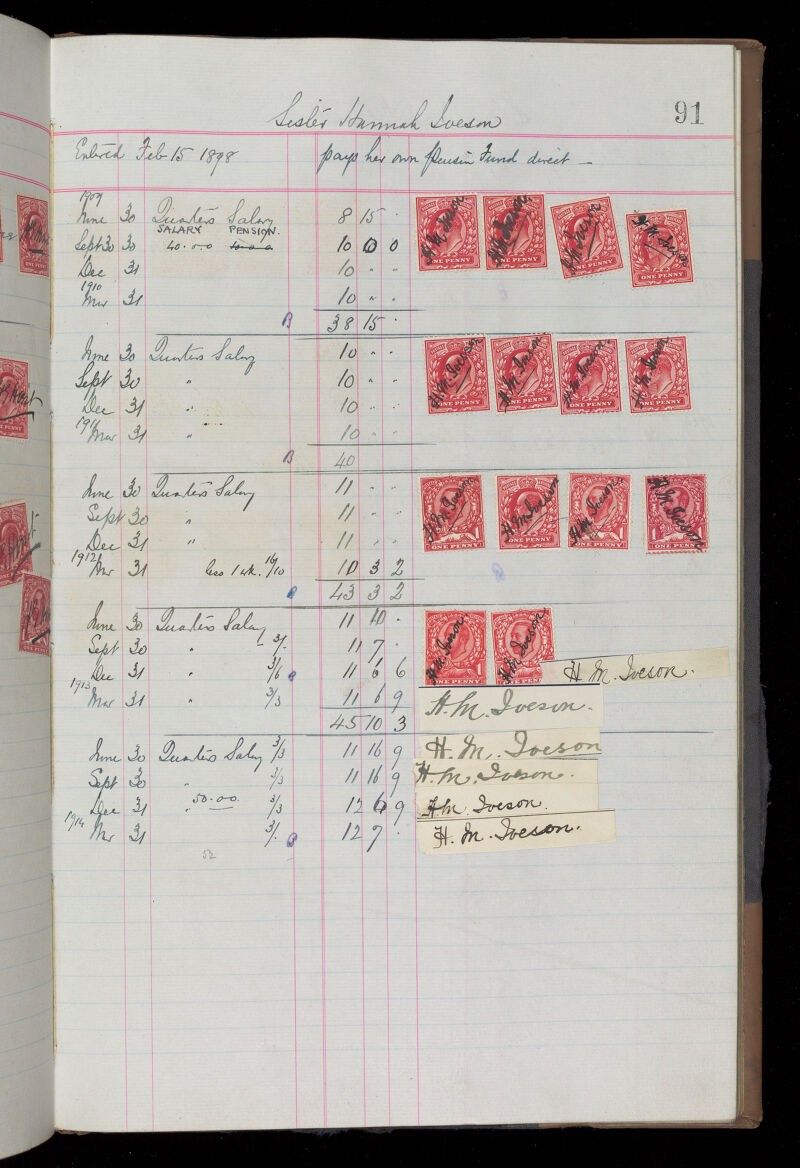 91
Sister Hannah Iveson
Entered Feb 15 1898 pays her own Pension Fund direct —
1909
June 30 Quarters Salary 8 15 .
SALARY PENSION.
Sept 30 40.0.0 10 0 0
Dec 31 10 " "
1910
Mar 31 10 " "
B 38 15 .
June 30 Quarters Salary 10 " "
Sept 30 " 10 " "
Dec 31 " 10 " "
1911
Mar 31 " 10 " "
B 40
June 30 Quarters Salary 11 " "
Sept 30 " 11 " "
Dec 31 " 11 " "
1912
Mar 31 less 1 wk. 16/10 10 3 2
43 3 2
June 30 Quarters Salary 11 10 .
Sept 30 " - 3/. 11 7 .
Dec 31 " 3/6 11 6 6
1913
Mar 31 " 3/3 11 6 9
45 10 3
June 30 Quarters Salary 3/3 11 16 9
Sept 30 " 3/3 11 16 9
50.0.0
Dec 31 " 3/3 12 6 9
1914
Mar 31 3/. B 12 7 .
52
H. M. Iveson
H. M. Iveson
H. M. Iveson
H. M. Iveson
ONE PENNY
ONE PENNY
ONE PENNY
ONE PENNY
H. M. Iveson
H. M. Iveson
H. M. Iveson
H. M. Iveson
ONE PENNY
ONE PENNY
ONE PENNY
ONE PENNY
H. M. Iveson
H. M. Iveson
H. M. Iveson
H. M. Iveson
ONE PENNY
ONE PENNY
ONE PENNY
ONE PENNY
H. M. Iveson
H. M. Iveson
ONE PENNY
ONE PENNY
H. M. Iveson.
H. M. Iveson.
H. M. Iveson
H. M. Iveson.
H. M. Iveson.
H. M. Iveson.